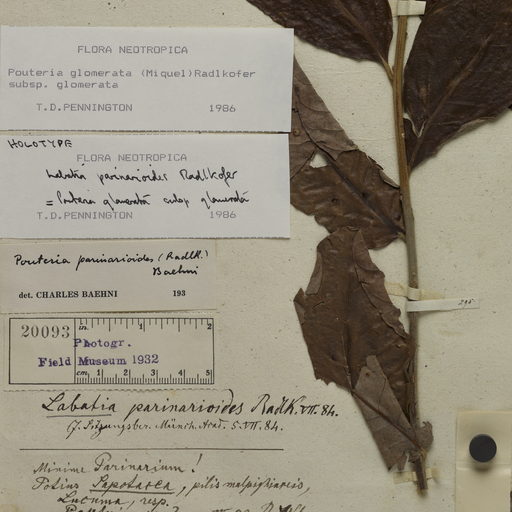 FLORA NEOTROPICA
Pouteria glomerata (Miquel)Radlkofer
subsp. glomerata
T.D.PENNINGTON 1986
HOLOTYPE
FLORA NEOTROPICA
Labatia parinarioides Radlkofer
= Pouteria glomerata subsp glomerata
T.D.PENNINGTON 1986
Pouteria parinarioides (Radlk.)
Baehni
det. CHARLES BAEHNI 193
20093
in. 1 2
Photogr.
Field Museum 1932
cm 1 2 3 4 5
Labatia parinarioides Radlk. VII. 84.
Sitzungsber. Münch. Acad. 5. VII. 84.
Minime Parinarium!
Potius Sapotacea, pilis malpighiaceis,
Lucuma, resp.